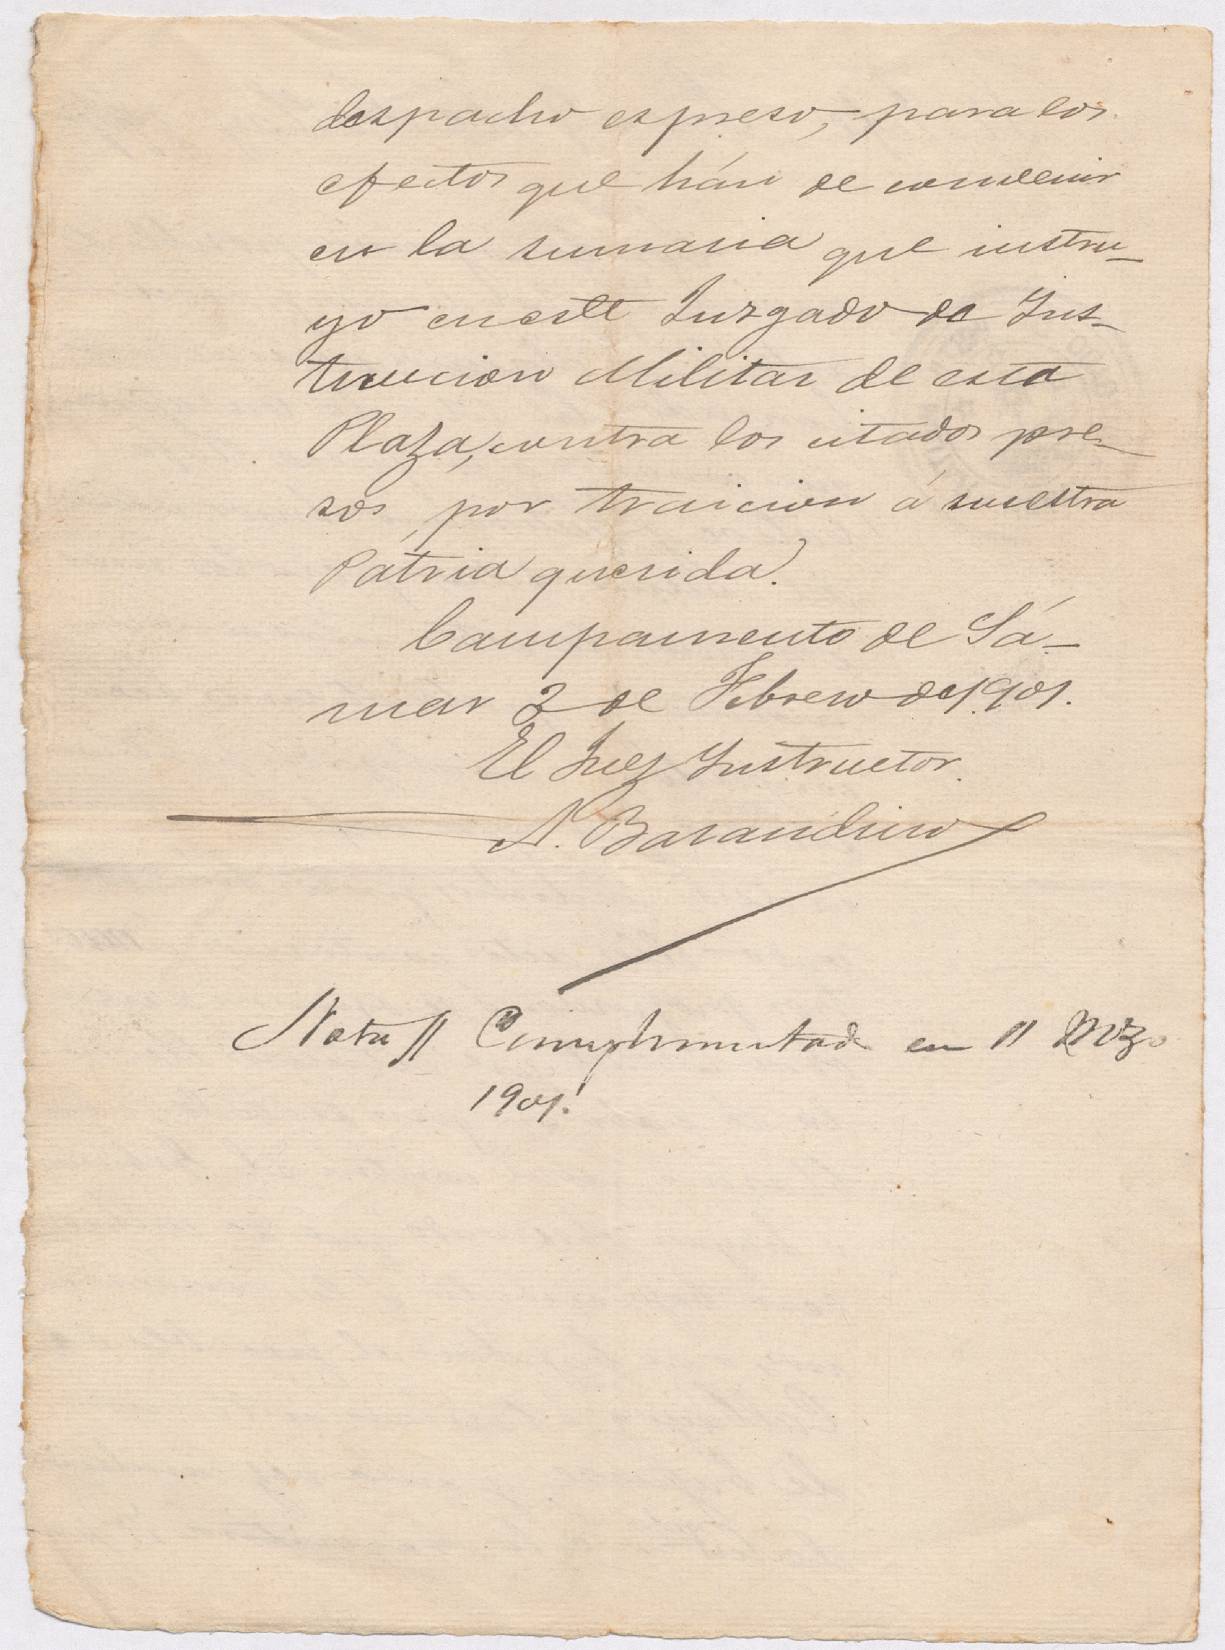 despacho espreso, para los
efectos que hán de convenir
en la sumaria que instru-
yo en este Juzgado de Ins-
truccion Militar de esta
Plaza, contra los citados pre-
sos, por traicion á nuestra
Pátria querida.
Campamento de Sá-
mar 2 de Febrero de 1901.
El Juez Instructor.
N. Barandino
Nota // Cumplimentada en 11 Mzo
1901.